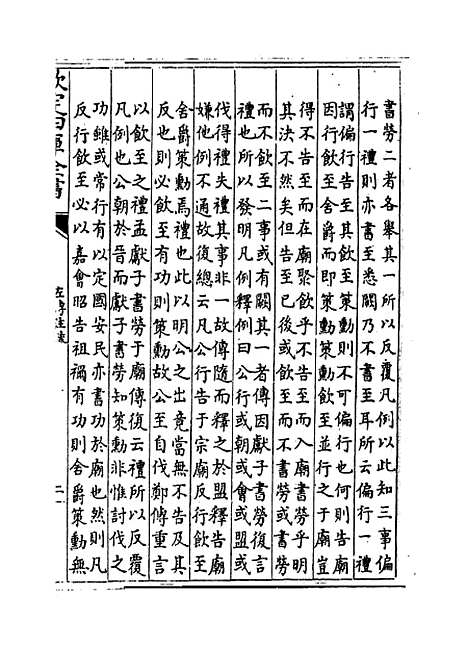 書勞二者各舉其一所以反覆凡例以此知三事偏
行一禮則亦書至悉闕乃不書至耳所云偏行一禮
謂偏行告至其飲至策勲則不可偏行也何則告廟
因行飲至舍爵而即策勲策勲飲至並行之于廟豈
得不告至而在廟聚飲乎不告至而入廟書勞乎明
其決不然矣但告至已後或飲至而不書勞或書勞
而不飲至二事或有闕其一者傳因獻子書勞復言
禮也所以發明凡例釋例曰公行或朝或會或盟或
伐得禮失禮其事非一故傳隨而釋之於盟釋告廟
嫌他例不通故復總云凡公行告于宗廟反行飲至
舍爵策勲焉禮也此以明公之出竟當無不告及其
反也則必飲至有功則策勲故公至自伐鄭傳重言
以飲至之禮孟獻子書勞于廟傳復云禮所以反覆
凡例也公朝於晉而獻子書勞知策勲非惟討伐之
功雖或常行有以定國安民亦書功於廟也然則凡
反行飲至必以嘉會昭告祖禰有功則舍爵策勲無
欽定四庫全書
左傳注疏
二